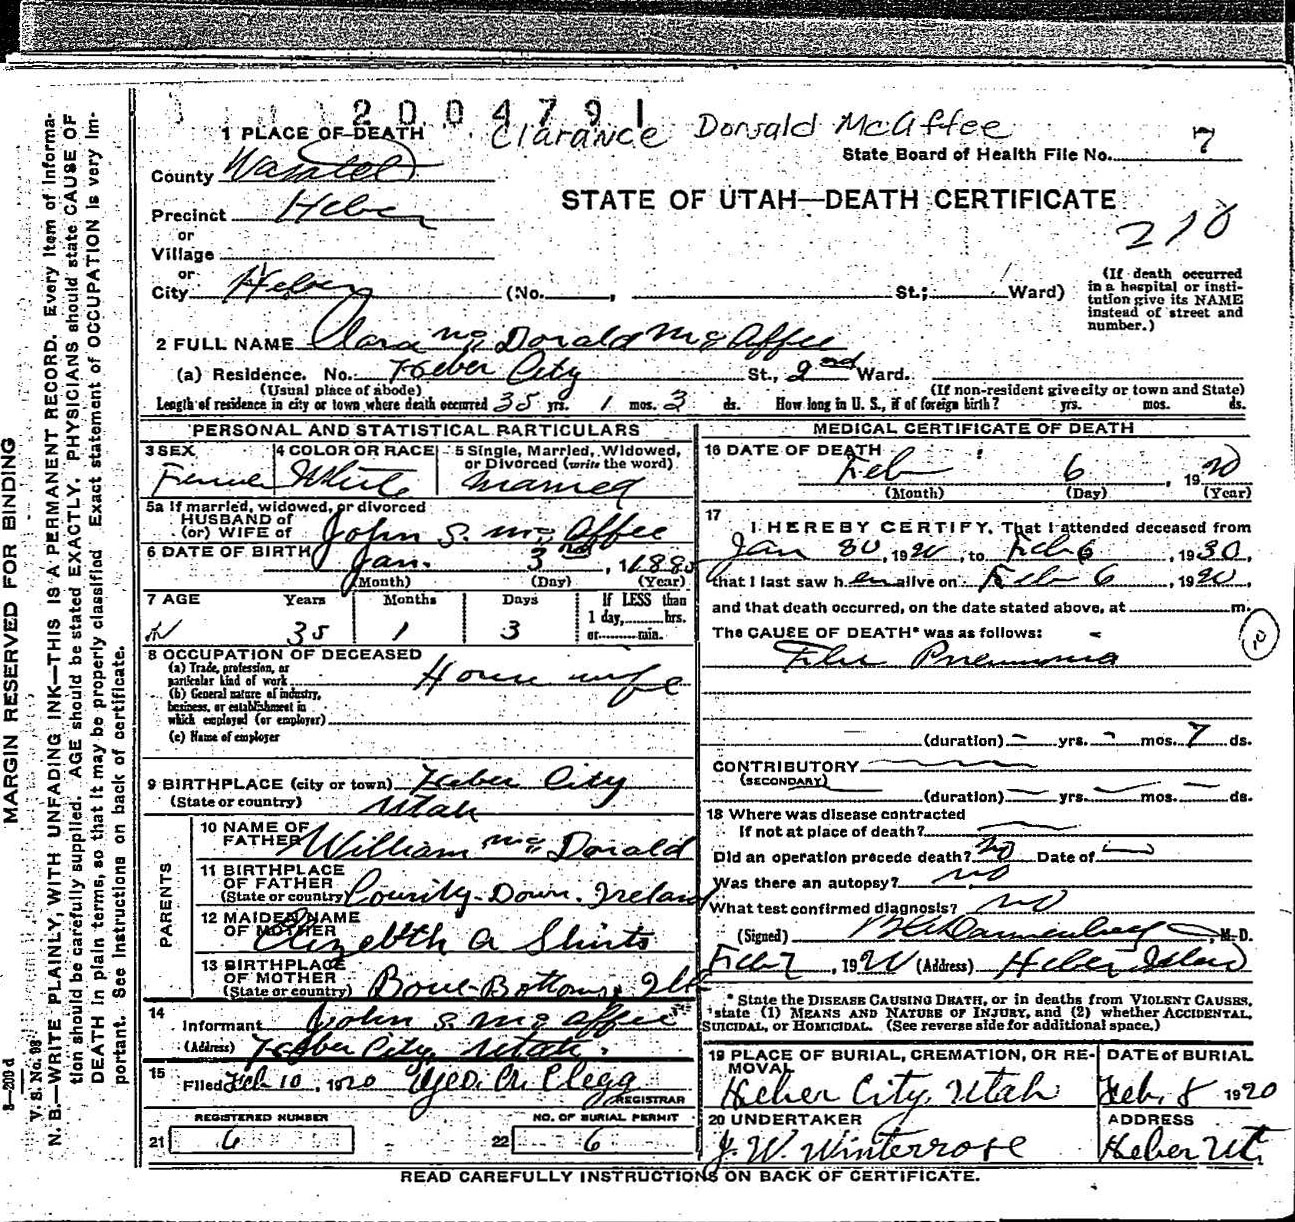 2004791
Clarance Donsald McAffee
1 PLACE OF DEATH
State Board of Health File No. 7
County Wasatch
STATE OF UTAH—DEATH CERTIFICATE
Precinct Heber
210
or
Village
or
City Heber (No. , St.; Ward)
(If death occurred
in a hospital or insti-
tution give its NAME
instead of street and
number.)
2 FULL NAME Clara Mc Donald Mc Affee
(a) Residence. No. Heber City St., 2nd Ward.
(Usual place of abode) (If non-resident give city or town and State)
Length of residence in city or town where death occurred 35 yrs. 1 mos. 3 ds. How long in U. S., if of foreign birth? yrs. mos. ds.
PERSONAL AND STATISTICAL PARTICULARS
3 SEX 4 COLOR OR RACE 5 Single, Married, Widowed,
or Divorced (write the word)
White Married
5a If married, widowed, or divorced
HUSBAND of
(or) WIFE of John S. Mc Affee
6 DATE OF BIRTH Jan. 3rd, 1885
(Month) (Day) (Year)
7 AGE Years Months Days If LESS than
1 day, hrs.
or min.
35 1 3
8 OCCUPATION OF DECEASED
(a) Trade, profession, or
particular kind of work House wife
(b) General nature of industry,
business, or establishment in
which employed (or employer)
(c) Name of employer
9 BIRTHPLACE (city or town) Heber City
(State or country) Utah
PARENTS
10 NAME OF
FATHER William Mc Donald
11 BIRTHPLACE
OF FATHER
(State or country) County Down. Ireland
12 MAIDEN NAME
OF MOTHER Elizebth A Shirts
13 BIRTHPLACE
OF MOTHER
(State or country) Bottoms, Ill
14
Informant John S. Mc Affee
(Address) Heber City Utah.
15
Filed Feb 10, 1920 Geo. A. Clegg
REGISTRAR
REGISTERED NUMBER NO. OF BURIAL PERMIT
21 6 22 6
MEDICAL CERTIFICATE OF DEATH
16 DATE OF DEATH
Feb 6, 1920
(Month) (Day) (Year)
17
I HEREBY CERTIFY, That I attended deceased from
Jan 30, 1920, to Feb 6, 1920,
that I last saw her alive on Feb 6, 1920,
and that death occurred, on the date stated above, at m.
The CAUSE OF DEATH* was as follows:
Flu Pneumonia
10
(duration) – yrs. – mos. 7 ds.
CONTRIBUTORY
(SECONDARY)
(duration) — yrs. — mos. — ds.
18 Where was disease contracted
If not at place of death?
Did an operation precede death? no Date of
Was there an autopsy? no
What test confirmed diagnosis? no
(Signed) , M. D.
Feb 7, 1920 (Address) Heber Utah
* State the DISEASE CAUSING DEATH, or in deaths from VIOLENT CAUSES,
state (1) MEANS AND NATURE OF INJURY, and (2) whether ACCIDENTAL,
SUICIDAL, or HOMICIDAL. (See reverse side for additional space.)
19 PLACE OF BURIAL, CREMATION, OR RE-
MOVAL
Heber City, Utah
DATE of BURIAL
Feb. 8 1920
20 UNDERTAKER
J. W. Winterrose
ADDRESS
Heber Ut.
READ CAREFULLY INSTRUCTIONS ON BACK OF CERTIFICATE.
MARGIN RESERVED FOR BINDING
V. S. No. 98
N. B.—WRITE PLAINLY, WITH UNFADING INK—THIS IS A PERMANENT RECORD. Every item of informa-
tion should be carefully supplied. AGE should be stated EXACTLY. PHYSICIANS should state CAUSE OF
DEATH in plain terms, so that it may be properly classified. Exact statement of OCCUPATION is very im-
portant. See instructions on back of certificate.